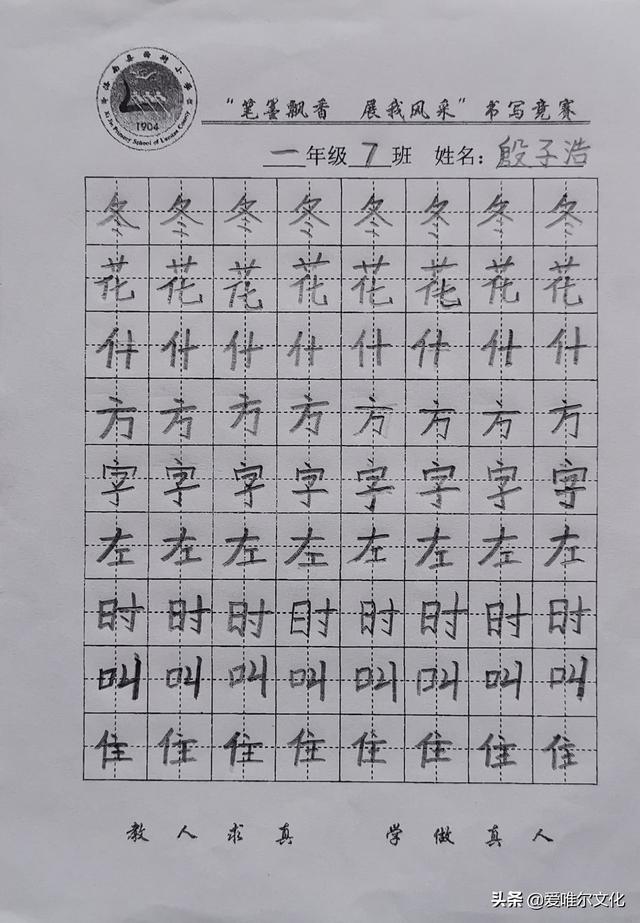 1904
“笔墨飘香 展我风采”书写竞赛
一年级7班 姓名：殷子浩
冬冬冬冬冬冬冬冬
花花花花花花花花
什什什什什什什什
方方方方方方方方
字字字字字字字字
左左左左左左左左
时时时时时时时时
叫叫叫叫叫叫叫叫
住住住住住住住住
教人求真 学做真人
头条 @爱唯尔文化